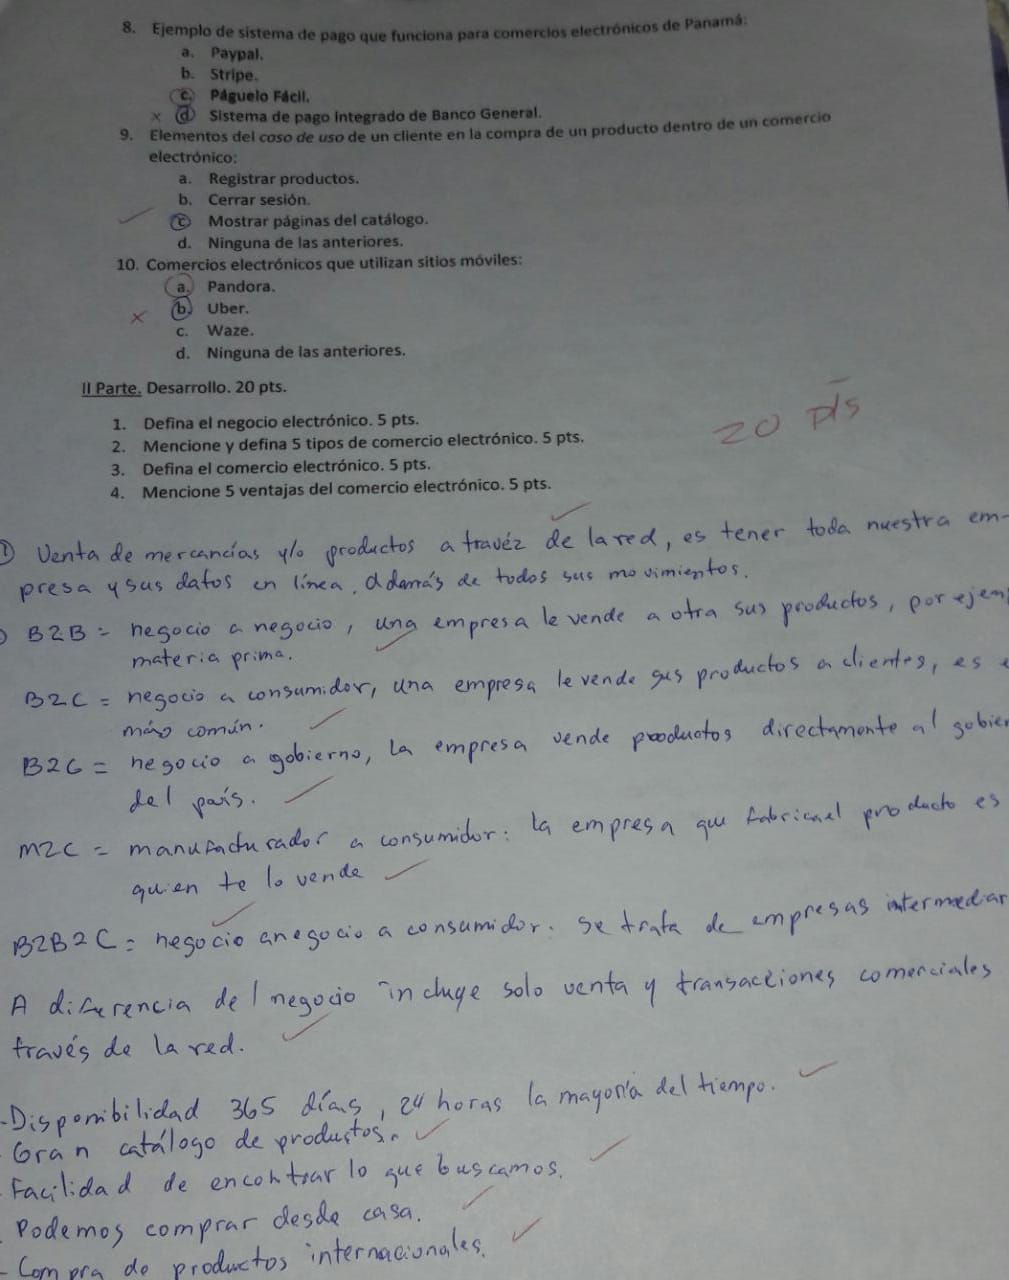 8. Ejemplo de sistema de pago que funciona para comercios electrónicos de Panamá:
a. Paypal.
b. Stripe.
c. Páguelo Fácil.
x d. Sistema de pago integrado de Banco General.
9. Elementos del caso de uso de un cliente en la compra de un producto dentro de un comercio
electrónico:
a. Registrar productos.
b. Cerrar sesión.
c. Mostrar páginas del catálogo.
d. Ninguna de las anteriores.
10. Comercios electrónicos que utilizan sitios móviles:
a. Pandora.
x b. Uber.
c. Waze.
d. Ninguna de las anteriores.
II Parte. Desarrollo. 20 pts.
1. Defina el negocio electrónico. 5 pts.
20 pts
2. Mencione y defina 5 tipos de comercio electrónico. 5 pts.
3. Defina el comercio electrónico. 5 pts.
4. Mencione 5 ventajas del comercio electrónico. 5 pts.
① Venta de mercancías y/o productos a travéz de la red, es tener toda nuestra em-
presa y sus datos en línea, además de todos sus movimientos.
B2B = negocio a negocio, una empresa le vende a otra sus productos, por ejem
materia prima.
B2C = negocio a consumidor, una empresa le vende sus productos a clientes, es
más común.
B2G = negocio a gobierno, la empresa vende productos directamente al gobier
del país.
M2C = manufacturador a consumidor: la empresa que fabrica el producto es
quien te lo vende
B2B2C = negocio a negocio a consumidor. Se trata de empresas intermediar
A diferencia del negocio incluye solo venta y transacciones comerciales
través de la red.
- Disponibilidad 365 días, 24 horas la mayoría del tiempo.
- Gran catálogo de productos.
- Facilidad de encontrar lo que buscamos.
- Podemos comprar desde casa.
- Compra de productos internacionales.